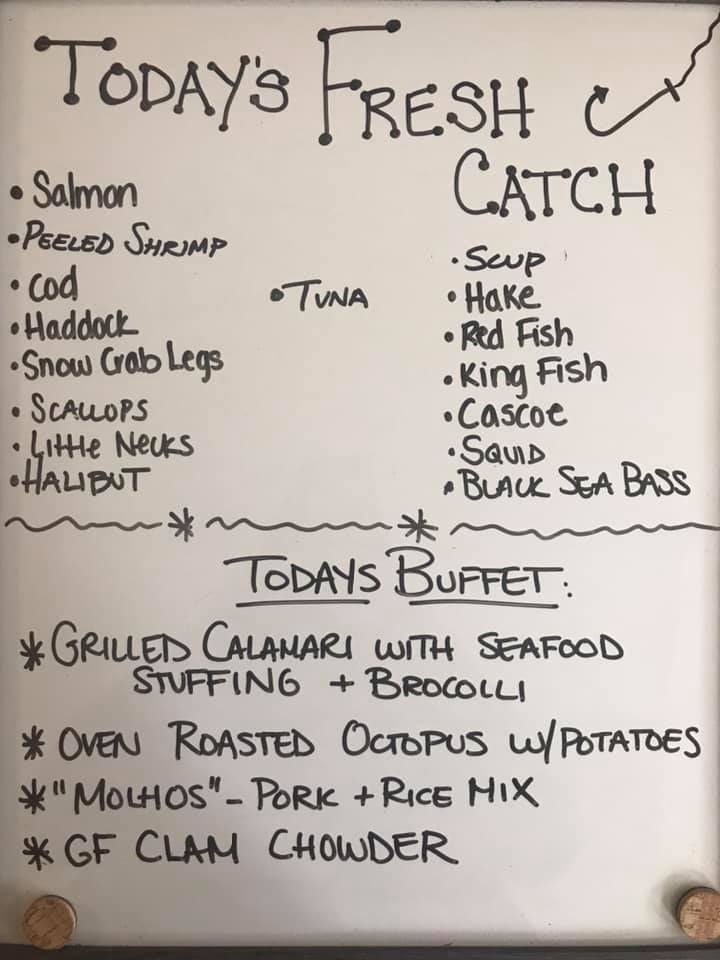 TODAY'S FRESH
CATCH
• Salmon
• PEELED SHRIMP
• Cod
• Haddock
• Snow Crab Legs
• SCALLOPS
• Little Necks
• HALIBUT
• TUNA
• Scup
• Hake
• Red Fish
• King Fish
• Cascoe
• SQUID
• BLACK SEA BASS
TODAYS BUFFET:
* GRILLED CALAMARI WITH SEAFOOD
STUFFING + BROCOLLI
* OVEN ROASTED OCTOPUS W/POTATOES
* "MOLHOS" - PORK + RICE MIX
* GF CLAM CHOWDER